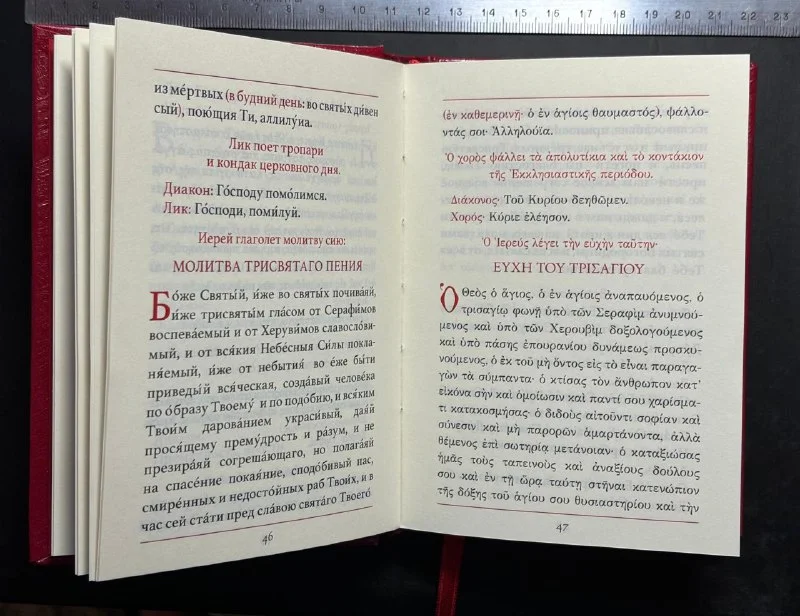 1 2 3 4 5 6 7 8 9 10 11 12 13 14 15 16 17 18 19 20 21 22 23
из ме́ртвых (в будний день: во святы́х ди́вен
сый), пою́щия Ти, аллилу́иа.
Лик поет тропари
и кондак церковного дня.
Диакон: Го́споду помо́лимся.
Лик: Го́споди, поми́луй.
Иерей глаголет молитву сию:
МОЛИТВА ТРИСВЯТАГО ПЕНИЯ
Бо́же Святы́й, и́же во святы́х почива́яй,
и́же трисвяты́м гла́сом от Серафи́мов
воспева́емый и от Херуви́мов славослови́-
мый, и от вся́кия Небе́сныя Си́лы покла-
ня́емый, и́же от небытия́ во е́же бы́ти
приведы́й вся́ческая, созда́вый челове́ка
по о́бразу Твоему́ и по подо́бию, и вся́ким
Твои́м дарова́нием украси́вый, дая́й
прося́щему прему́дрость и ра́зум, и не
презира́яй согреша́ющаго, но полага́яй
на спасе́ние покая́ние, сподо́бивый нас,
смире́нных и недосто́йных раб Твои́х, и в
час сей ста́ти пред сла́вою свята́го Твоего́
46
(ἐν καθεμερινῇ· ὁ ἐν ἁγίοις θαυμαστός), ψάλλο-
ντάς σοι· Ἀλληλούϊα.
Ὁ χορὸς ψάλλει τὰ ἀπολυτίκια καὶ τὸ κοντάκιον
τῆς Ἐκκλησιαστικῆς περιόδου.
Διάκονος· Τοῦ Κυρίου δεηθῶμεν.
Χορός· Κύριε ἐλέησον.
Ὁ Ἱερεὺς λέγει τὴν εὐχὴν ταύτην·
ΕΥΧΗ ΤΟΥ ΤΡΙΣΑΓΙΟΥ
Ὁ Θεὸς ὁ ἅγιος, ὁ ἐν ἁγίοις ἀναπαυόμενος, ὁ
τρισαγίῳ φωνῇ ὑπὸ τῶν Σεραφὶμ ἀνυμνού-
μενος καὶ ὑπὸ τῶν Χερουβὶμ δοξολογούμενος
καὶ ὑπὸ πάσης ἐπουρανίου δυνάμεως προσκυ-
νούμενος, ὁ ἐκ τοῦ μὴ ὄντος εἰς τὸ εἶναι παραγα-
γὼν τὰ σύμπαντα· ὁ κτίσας τὸν ἄνθρωπον κατ’
εἰκόνα σὴν καὶ ὁμοίωσιν καὶ παντί σου χαρίσμα-
τι κατακοσμήσας· ὁ διδοὺς αἰτοῦντι σοφίαν καὶ
σύνεσιν καὶ μὴ παρορῶν ἁμαρτάνοντα, ἀλλὰ
θέμενος ἐπὶ σωτηρίᾳ μετάνοιαν· ὁ καταξιώσας
ἡμᾶς τοὺς ταπεινοὺς καὶ ἀναξίους δούλους
σου καὶ ἐν τῇ ὥρᾳ ταύτῃ στῆναι κατενώπιον
τῆς δόξης τοῦ ἁγίου σου θυσιαστηρίου καὶ τὴν
47